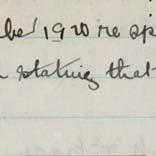 ber 1920 re sp
stating that